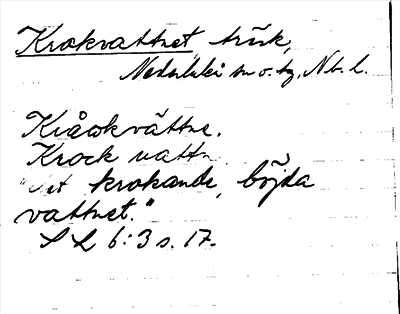 Krokvattnet träsk,
Nederkalix sn o. tg, Nb. l.
Kråokvättne.
Krock vattn.
"Det krokande, böjda
vattnet."
S L 6:3 s. 17.